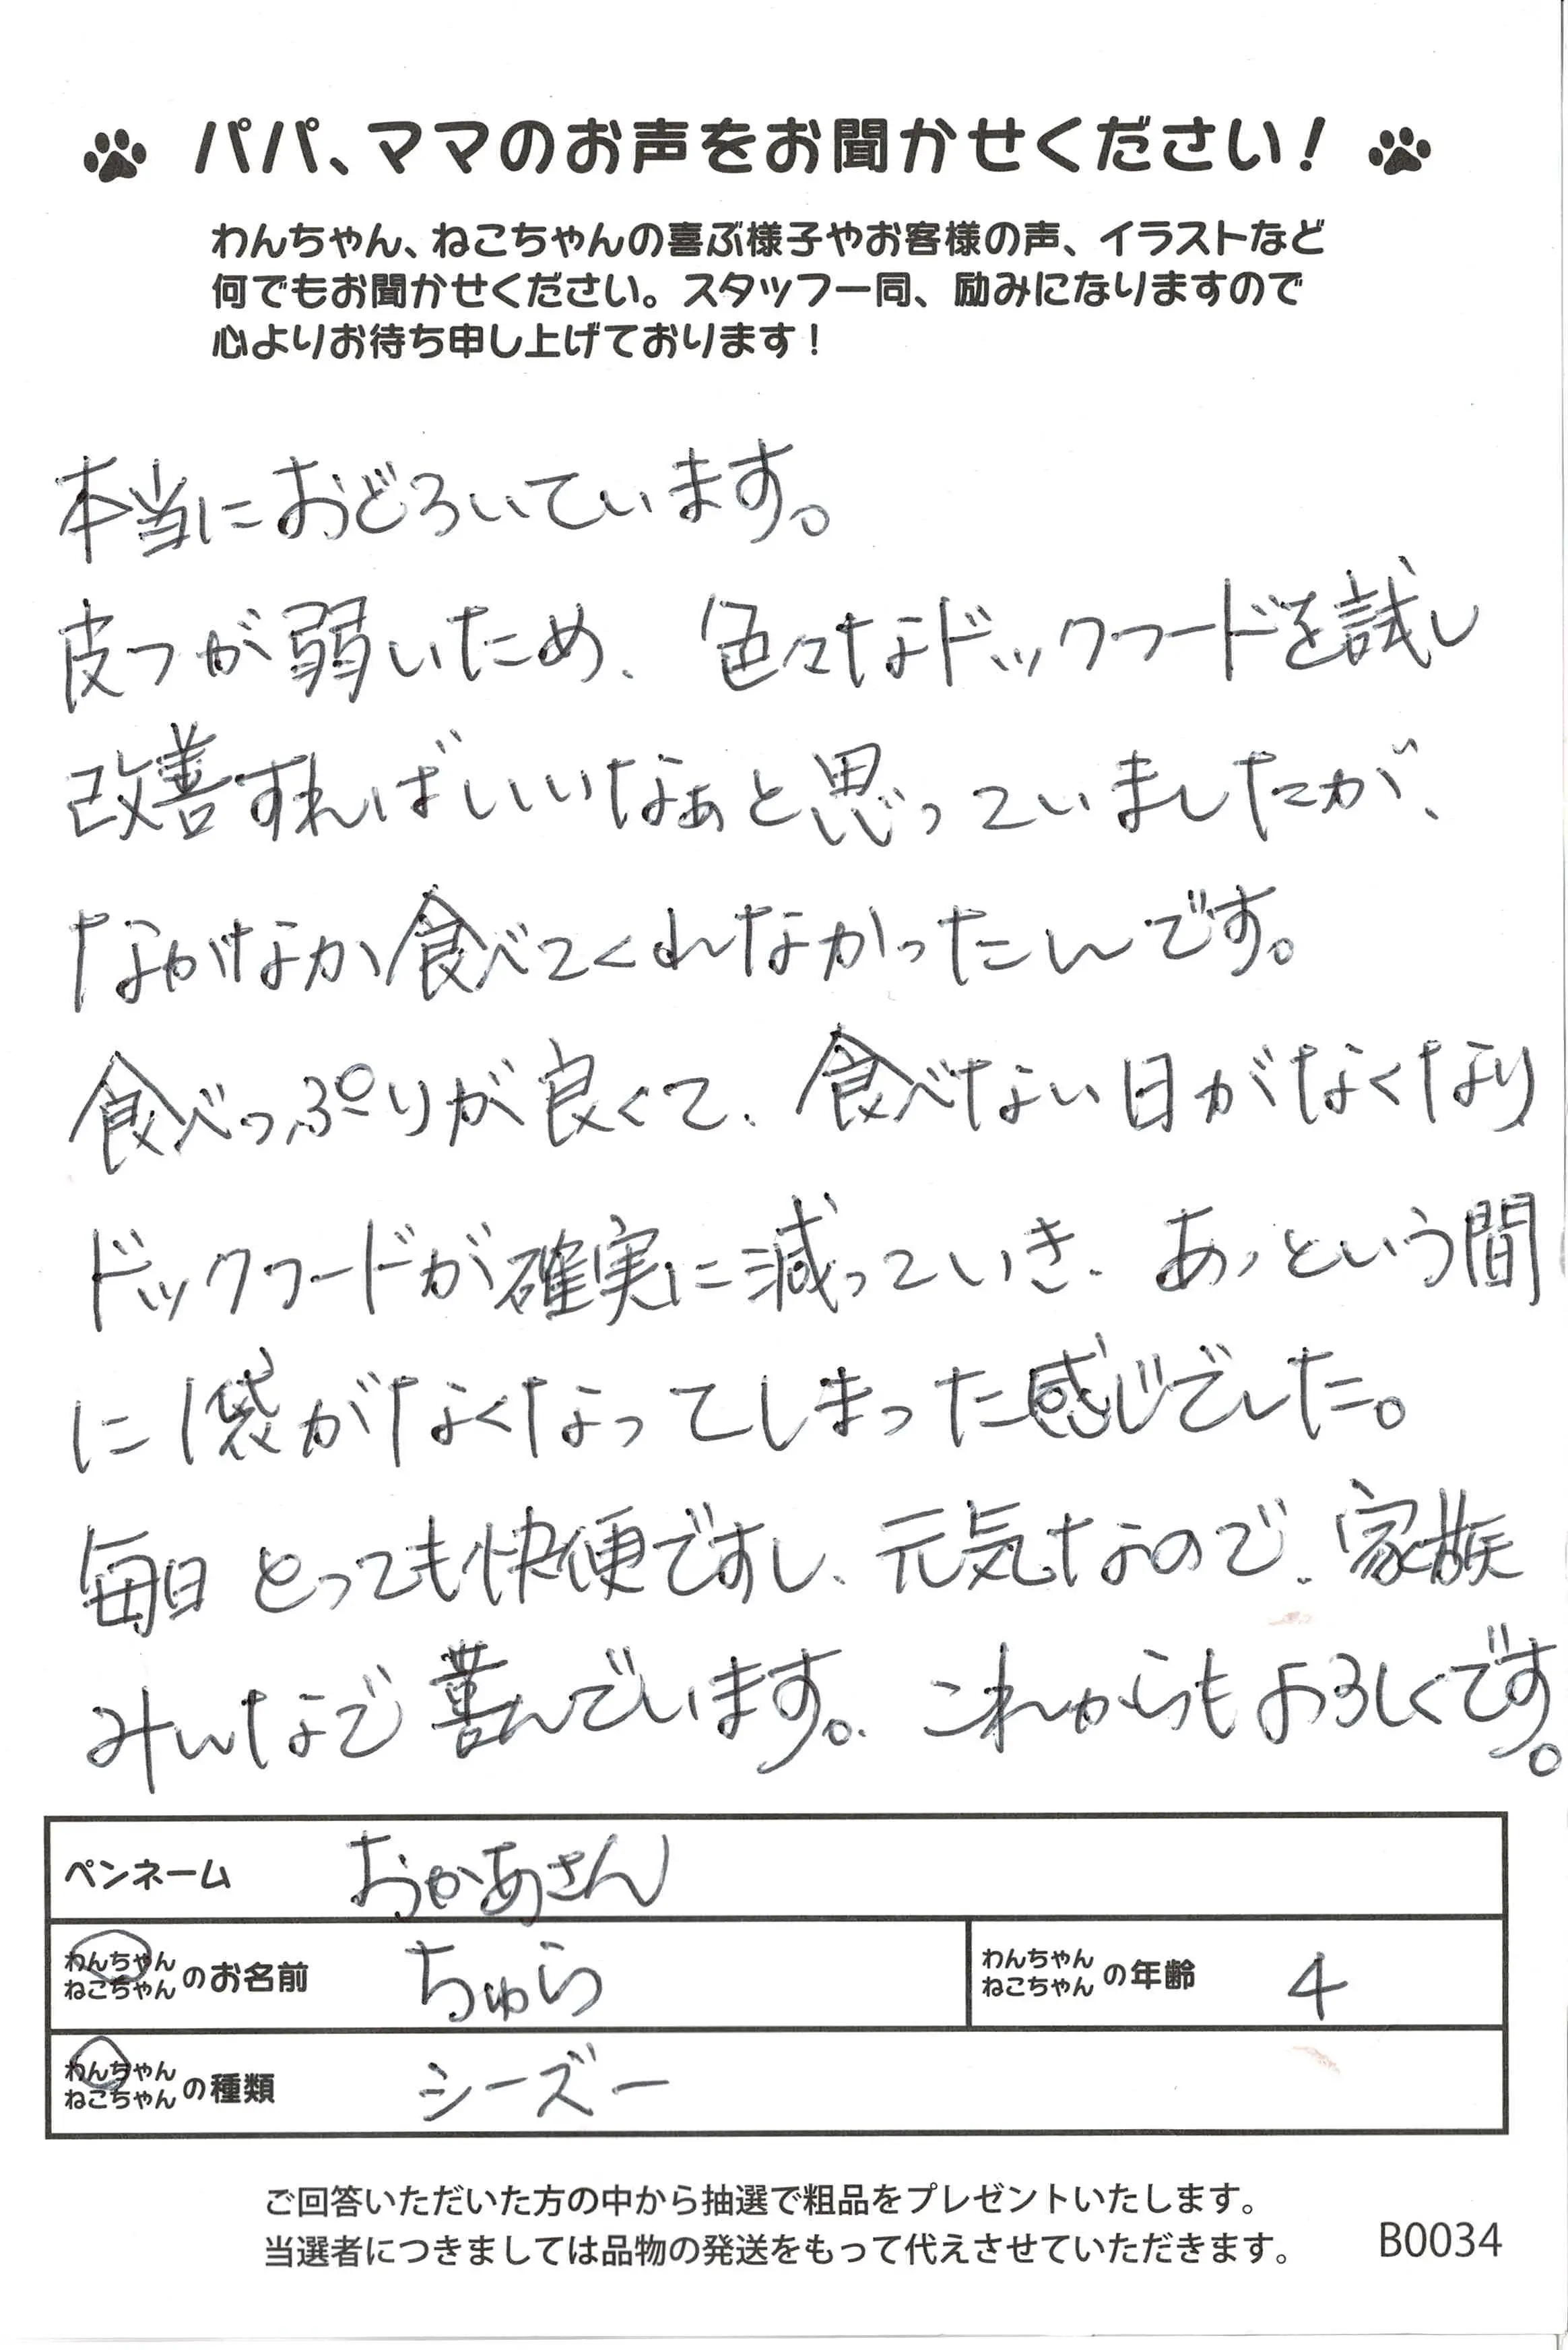 パパ、ママのお声をお聞かせください!
わんちゃん、ねこちゃんの喜ぶ様子やお客様の声、イラストなど
何でもお聞かせください。スタッフ一同、励みになりますので
心よりお待ち申し上げております!
本当におどろいています。
皮フが弱いため、色々なドックフードを試し
改善すればいいなぁと思っていましたが、
なかなか食べてくれなかったんです。
食べっぷりが良くて、食べない日がなくなり
ドックフードが確実に減っていき、あっという間
に1袋がなくなってしまった感じでした。
毎日とっても快便ですし、元気なので、家族
みんなで喜んでいます。これからもよろしくです。
ペンネーム おかあさん
わんちゃん ねこちゃん のお名前 ちゅら わんちゃん ねこちゃん の年齢 4
わんちゃん ねこちゃん の種類 シーズー
ご回答いただいた方の中から抽選で粗品をプレゼントいたします。
当選者につきましては品物の発送をもって代えさせていただきます。 B0034